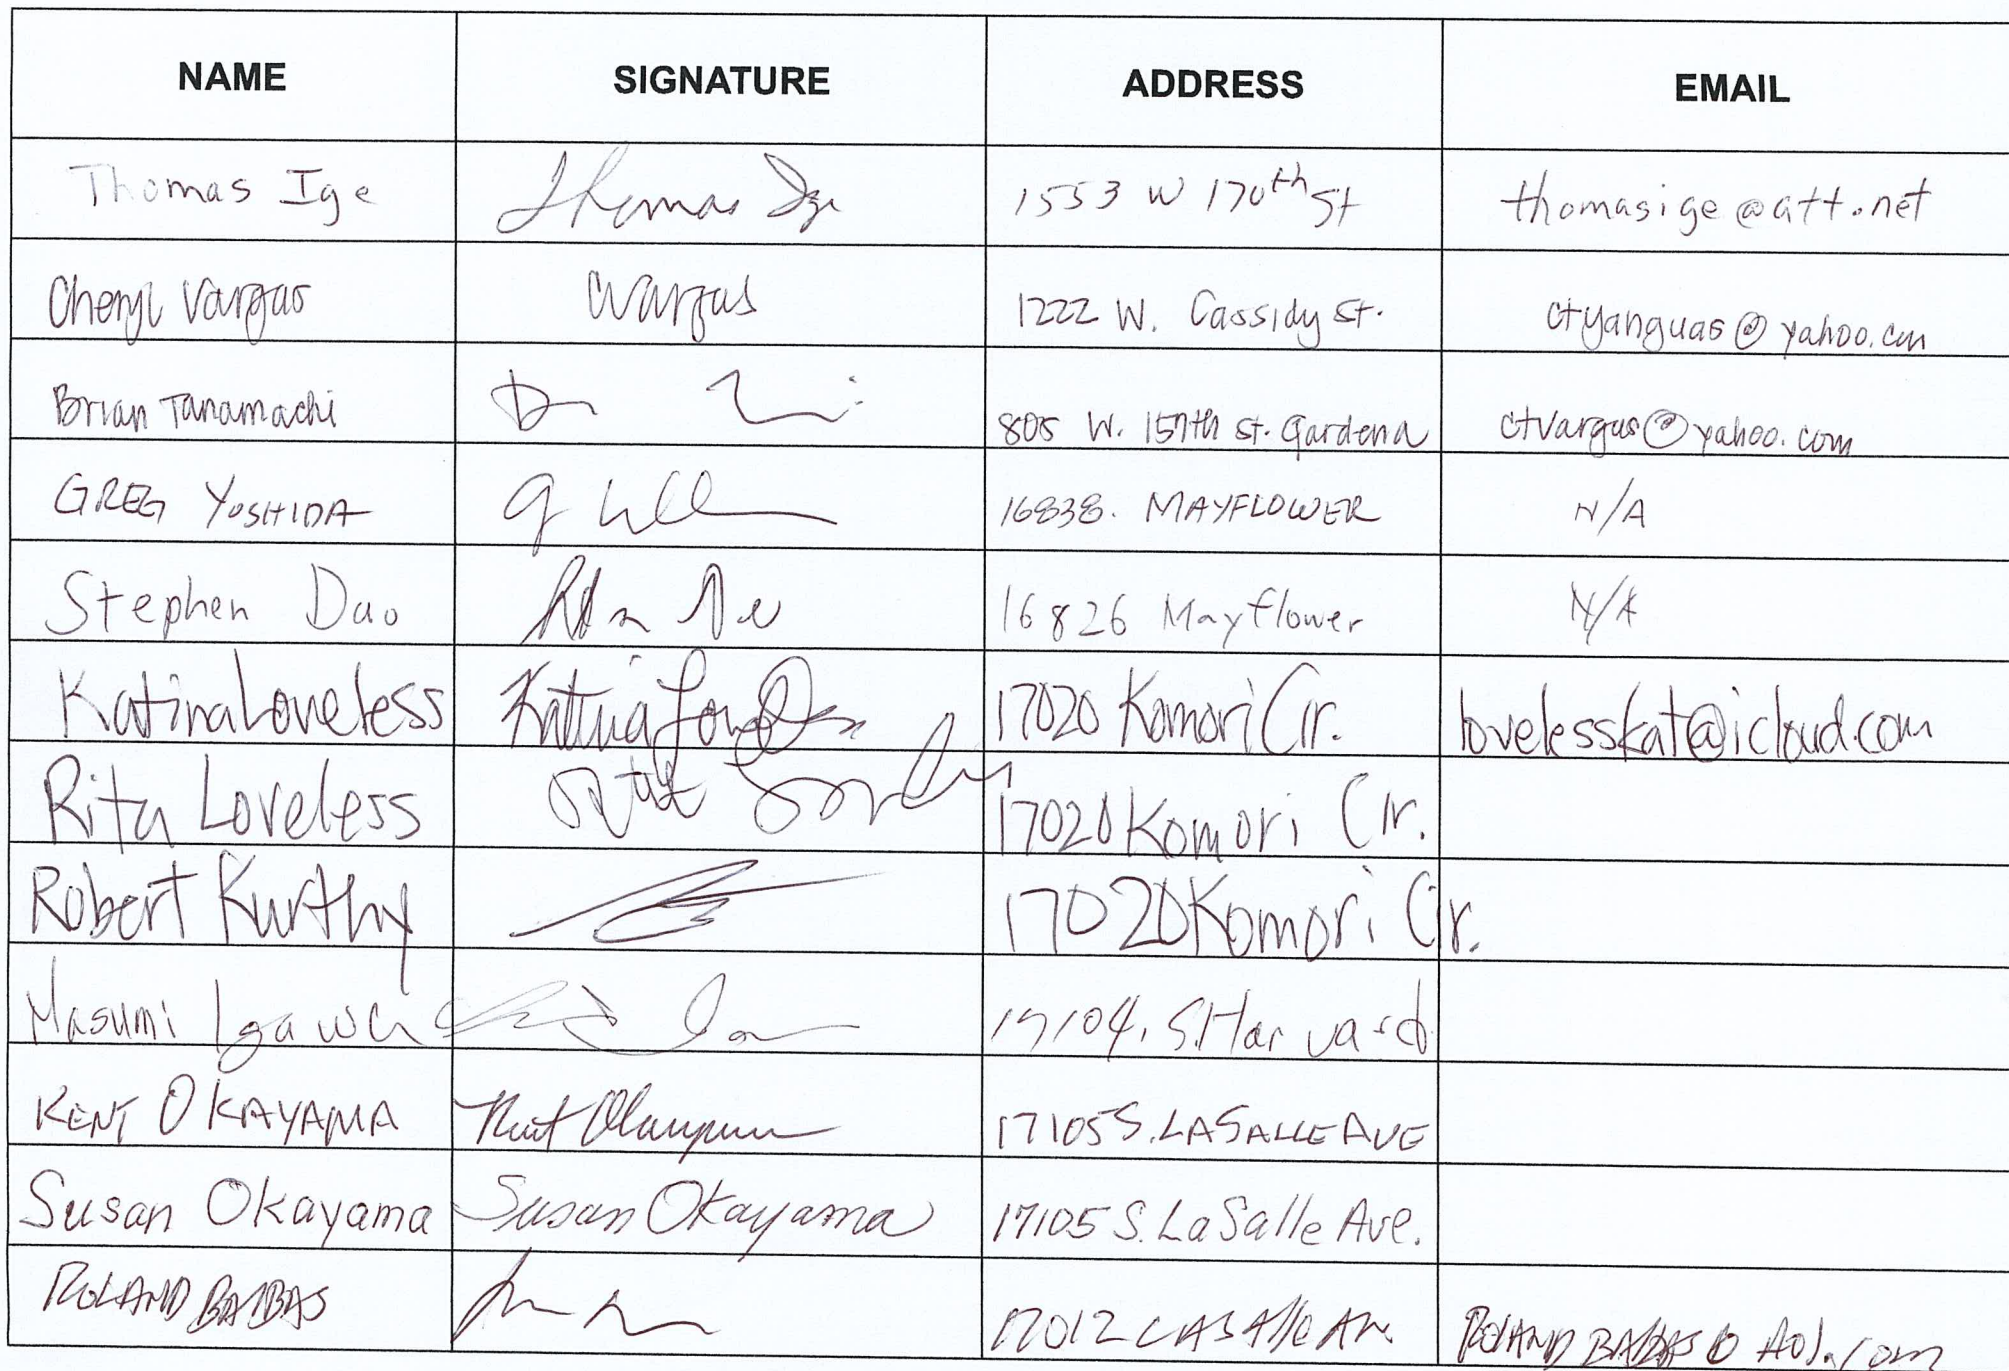 NAME SIGNATURE ADDRESS EMAIL
Thomas Ige Thomas Ige 1553 W 170th St thomasige@att.net
Cheryl Vargas CVargas 1222 W. Cassidy St. ctyanguas@yahoo.com
Brian Tanamachi 805 W. 157th St. Gardena ctvargas@yahoo.com
GREG YOSHIDA 16838. MAYFLOWER N/A
Stephen Dao 16826 Mayflower N/A
Katina Loveless 17020 Komori Cir. lovelesskat@icloud.com
Rita Loveless Rita 17020 Komori Cir.
Robert Kurthy 17020 Komori Cir.
Masumi Igawa 17104. S. Harvard
KENT OKAYAMA Kent Okayama 17105 S. LASALLE AVE
Susan Okayama Susan Okayama 17105 S. LaSalle Ave.
ROLAND 17012 LASAlle Av.